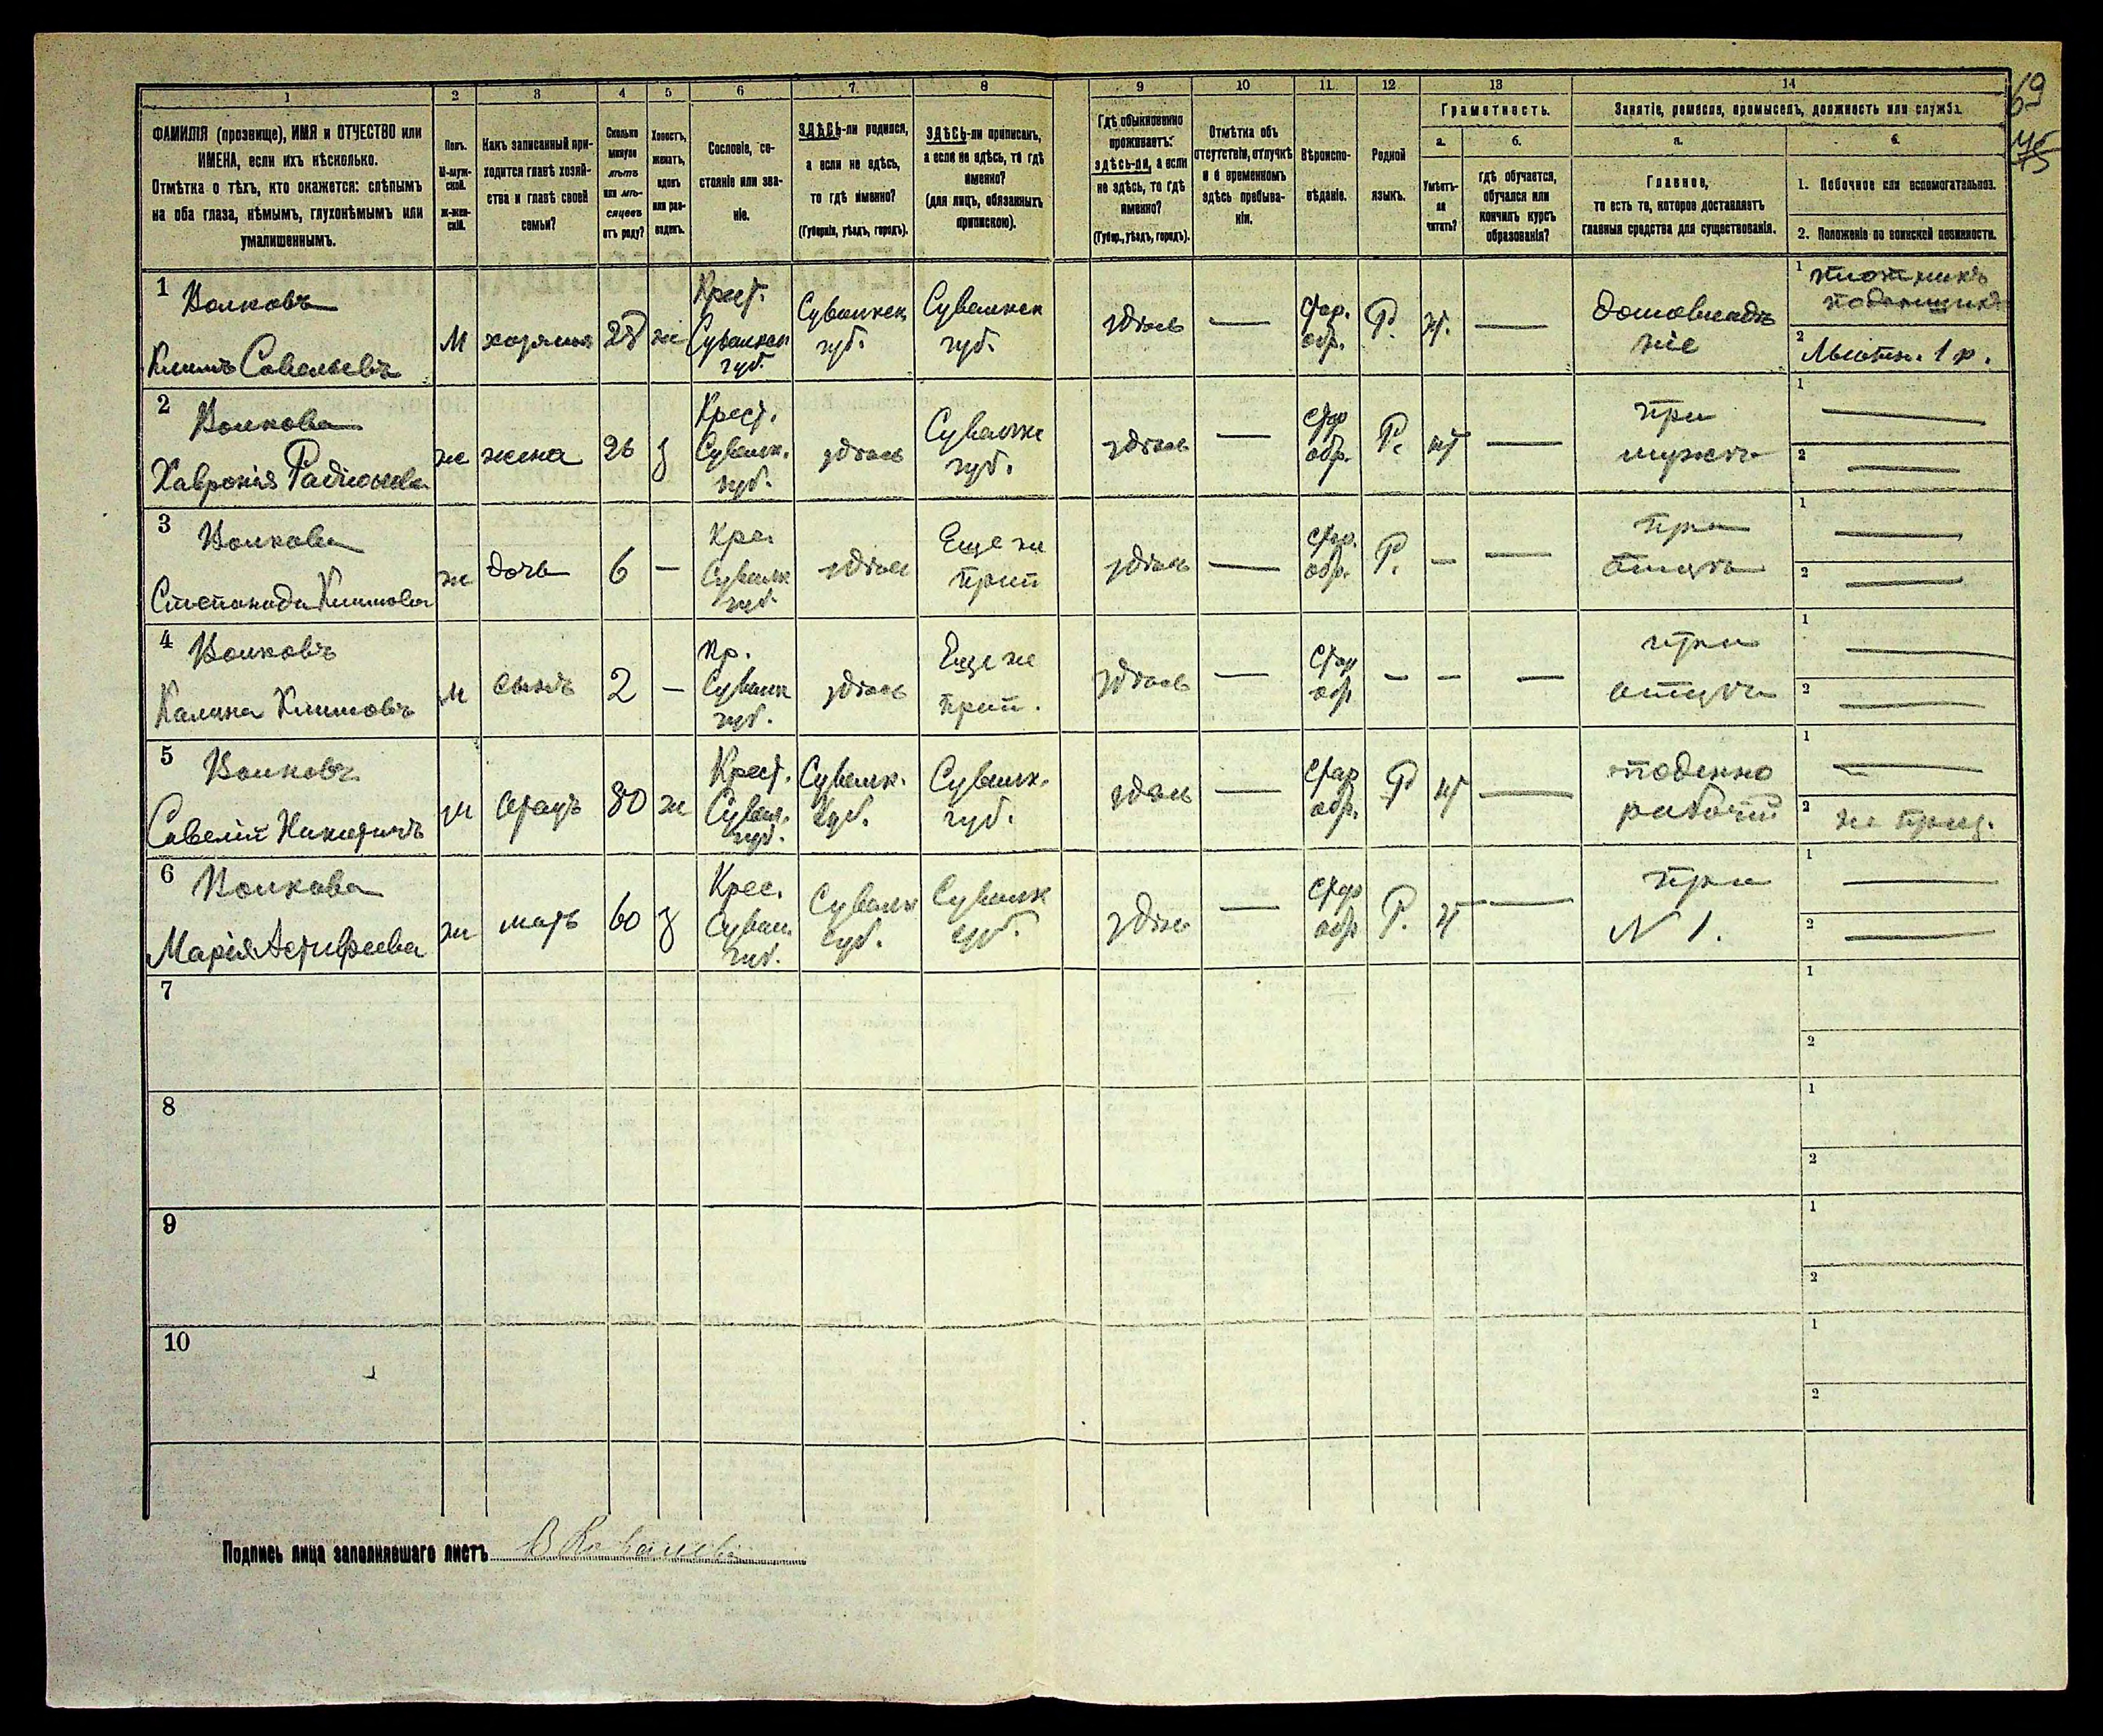 69
75
1 2 3 4 5 6 7 8 9 10 11 12 13 14
ФАМИЛІЯ (прозвище), ИМЯ и ОТЧЕСТВО или
ИМЕНА, если ихъ нѣсколько.
Отмѣтка о тѣхъ, кто окажется: слѣпымъ
на оба глаза, нѣмымъ, глухонѣмымъ или
умалишеннымъ.
Полъ.
М-муж-
ской.
ж-жен-
скій.
Какъ записанный при-
ходится главѣ хозяй-
ства и главѣ своей
семьи?
Сколько
минуло
лѣтъ
или мѣ-
сяцевъ
отъ роду?
Холостъ,
женатъ,
вдовъ
или раз-
веденъ.
Сословіе, со-
стояніе или зва-
ніе.
ЗДѢСЬ-ли родился,
а если не здѣсь,
то гдѣ именно?
(Губернія, уѣздъ, городъ).
ЗДѢСЬ-ли приписанъ,
а если не здѣсь, то гдѣ
именно?
(для лицъ, обязанныхъ
припискою).
Гдѣ обыкновенно
проживаетъ:
здѣсь-ли, а если
не здѣсь, то гдѣ
именно?
(Губер., уѣздъ, городъ).
Отмѣтка объ
отсутствіи, отлучкѣ
и о временномъ
здѣсь пребыва-
ніи.
Вѣроиспо-
вѣданіе.
Родной
языкъ.
Грамотность.
а.
Умѣетъ-
ли
читать?
б.
гдѣ обучается,
обучался или
кончилъ курсъ
образованія?
Занятіе, ремесло, промыселъ, должность или служба.
а.
Главное,
то есть то, которое доставляетъ
главныя средства для существованія.
б.
1. Побочное или вспомогательное.
2. Положеніе по воинской повинности.
1 Волковъ
Климъ Савельевъ
М хозяинъ 28 ж
Крест.
Сувалкск
губ.
Сувалкск
губ.
Сувалкск
губ.
здѣсь —
Стар.
обр.
Р. —
домовладѣ
ніе
1 плотникъ
поденщикъ
2 1 р.
2 Волкова
Хавронія Радіонова
ж жена 26 з
Крест.
Сувалк.
губ.
здѣсь
Сувалкс
губ.
здѣсь —
Стар
обр.
Р. —
при
мужѣ
1 —
2 —
3 Волкова
Степанида Климова
ж дочь 6 —
Крес
Сувалк
губ.
здѣсь
Еще не
прип
здѣсь —
Стар.
обр.
Р. — —
при
отцѣ
1 —
2 —
4 Волковъ
Калина Климовъ
М сынъ 2 —
Кр.
Сувалк
губ.
здѣсь
Еще не
прип.
здѣсь —
Стар
обр
— — —
при
отцѣ
1 —
2 —
5 Волковъ
Савелій Никитичъ
м отецъ 80 ж
Крест.
Сувал.
губ.
Сувалк.
губ.
Сувалк.
губ.
здѣсь —
Стар
обр.
Р —
поденно
рабочій
1 —
2
6 Волкова
Марія
ж мать 60 з
Крес.
Сувал.
губ.
Сувалк
губ.
Сувалк
губ.
здѣсь —
Стар
обр
Р. —
при
N 1.
1 —
2 —
7 1
2
8 1
2
9 1
2
10 1
2
Подпись лица заполнявшаго листъ